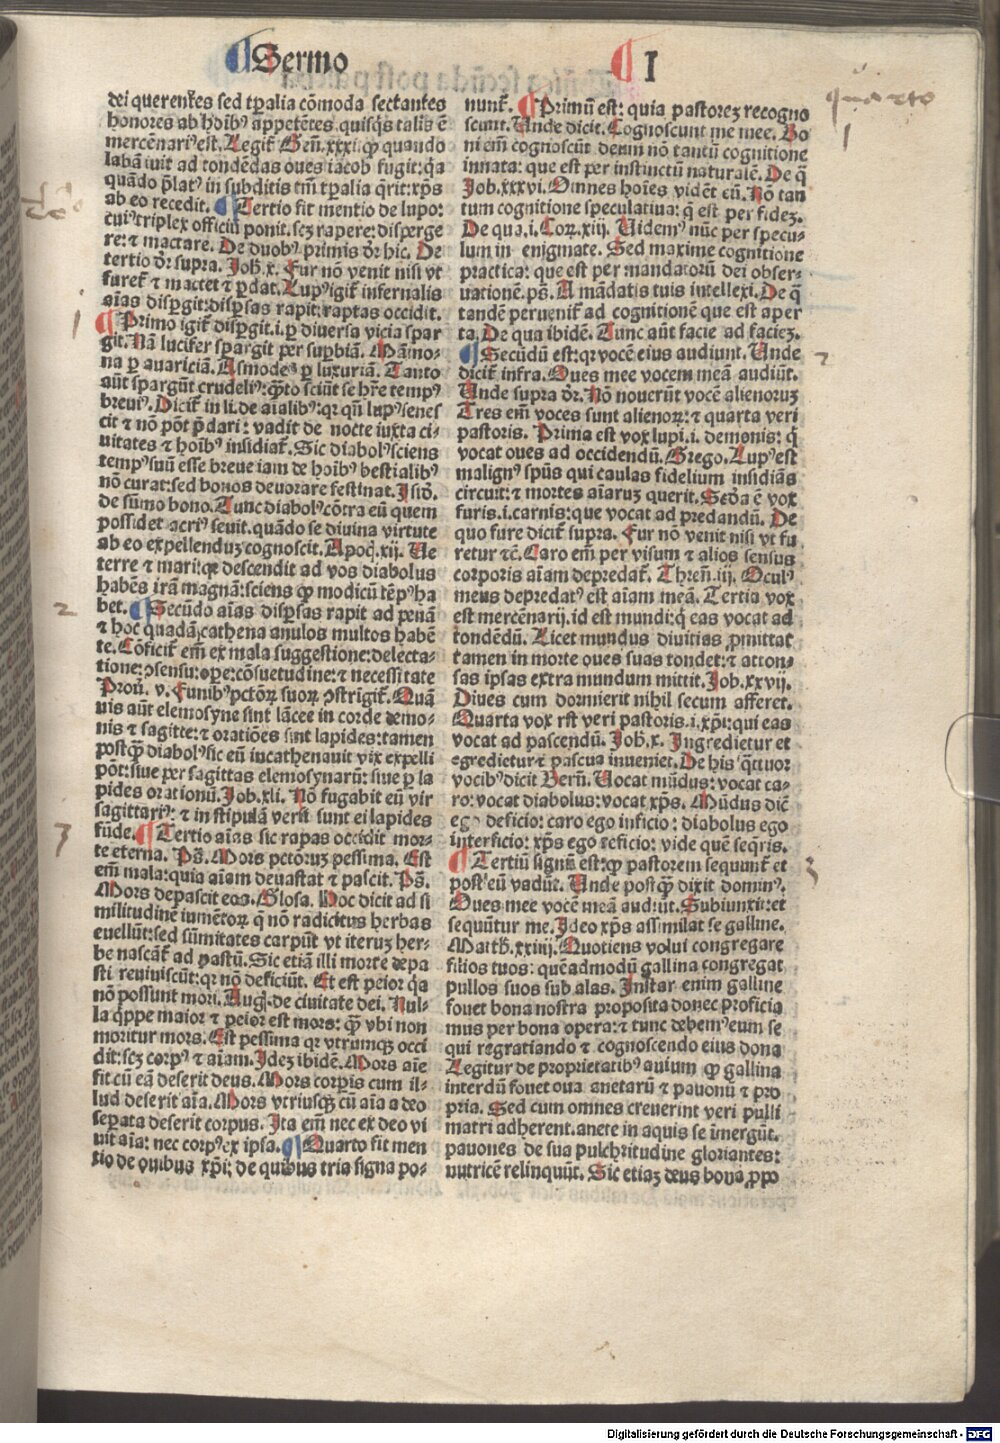 Sermo I
dei querentes sed tp̄alia cōmoda sectantes
honores ab hōibꝰ appetētes. quisq̄s talis ē
mercēnariꝰ est. Legit᷑ Geñ. xxxi. ꝙ quando
labā iuit ad tondēdas oues iacob fugit: q̄a
quādo p̄latꝰ in subditis tm̄ tp̄alia q̄rit: xp̄s
ab eo recedit. Tertio fit mentio de lupo:
cuiꝰ triplex officiū ponit. scꝫ rapere: disperge
re: ⁊ mactare. De duobꝰ primis dr̄ hic. De
tertio dr̄ supra. Joh̄. x. Fur nō venit nisi vt
furet᷑ ⁊ mactet ⁊ ꝑdat. Lupꝰ igit᷑ infernalis
aīas disꝑgit: disꝑsas rapit: raptas occidit.
Primo igit᷑ disꝑgit. i. ꝑ diuersa vicia spar
git. Nā lucifer spargit per suꝑbiā. Māmo-
na ꝑ auariciā. Asmodeꝰ ꝑ luxuriā. Tanto
aūt spargūt crudeliꝰ: q̄ꝫto sciūt se hr̄e tempꝰ
breuiꝰ. Dicit᷑ in li. de aīalibꝰ: qꝛ qn̄ lupꝰ senes
cit ⁊ nō pōt p̄dari: vadit de nocte iuxta ci-
uitates ⁊ hoībꝰ insidiat᷑. Sic diabolꝰ sciens
tempꝰ suū esse breue iam de hoībꝰ bestialibꝰ
nō curat: sed bonos deuorare festinat. Isid̄.
de sūmo bono. Tunc diabolꝰ cōtra eū quem
possidet acriꝰ seuit. quādo se diuina virtute
ab eo expellendum cognoscit. Apoc̄. xij. Ve
terre ⁊ mari: qꝛ descendit ad vos diabolus
habēs irā magnā: sciens ꝙ modicū tēpꝰ ha
bet. Secūdo aīas disꝑsas rapit ad penā
⁊ hoc quadā cathena anulos multos habē
te. Cōficit᷑ em̄ ex mala suggestione: delecta-
tione: ꝯsensu: oꝑe: cōsuetudine: ⁊ necessitate
Prou̅. v. Funibꝰ pctōꝝ suoꝝ ꝯstrigit᷑. Quā
uis aūt elemosyne sint lācee in corde demo-
nis ⁊ sagitte: ⁊ oratiōes sint lapides: tamen
postqꝫ diabolꝰ sic eū incathenauit vix expelli
pōt: siue per sagittas elemosynarū: siue ꝑ la
pides orationū. Job. xli. Nō fugabit eū vir
sagittariꝰ: ⁊ in stipulā versi sunt ei lapides
fūde. Tertio aīas sic rapas occidit mor-
te eterna. Ps̄. Mors pctōruꝫ pessima. Est
em̄ mala: quia aīam deuastat ⁊ pascit. Ps̄.
Mors depascit eos. Glosa. Hoc dicit ad si
militudinē iumētoꝝ q̄ nō radicitus herbas
euellūt: sed sūmitates carpūt vt iteruꝫ her-
be nascāt᷑ ad pastū. Sic etiā illi morte depa
sti reuiuiscūt: qꝛ nō deficiūt. Et est peior q̄a
nō possunt mori. Aug̅. de ciuitate dei. Nul-
la q̄ppe maior ⁊ peior est mors: qꝫ vbi non
moritur mors. Est pessima qꝛ vtrumqꝫ occi
dit: scꝫ corpꝰ ⁊ aīam. Idem ibidē. Mors aīe
fit cū eā deserit deus. Mors corpīs cum il-
lud deserit aīa. Mors vtriusqꝫ cū aīa a deo
seꝑata deserit corpus. Ita em̄ nec ex deo vi
uit aīa: nec corpꝰ ex ipsa. Quarto fit men
tio de ouibus xp̄i: de quibus tria signa po-
nunt᷑. Primū est: quia pastoreꝫ recogno
scunt. Unde dicit. Cognoscunt me mee. Bo
ni em̄ cognoscūt deum nō tantū cognitione
innata: que est per instinctū naturalē. De q̄
Job. xxxvi. Omnes hoīes vidēt eū. Nō tan
tum cognitione speculatiua: q̄ est per fideꝫ.
De qua. i. Coꝝ. xiij. Videmꝰ nūc per specu-
lum in enigmate. Sed maxime cognitione
practica: que est per mandatorū dei obser-
uationē. ps̄. A mādatis tuis intellexi. De q̄
tandē peruenit᷑ ad cognitionē que est aper
ta. De qua ibidē. Tunc aūt facie ad facieꝫ.
Secūdū est: qꝛ vocē eius audiunt. Unde
dicit᷑ infra. Oues mee vocem meā audiūt.
Unde supra dr̄. Nō nouerūt vocē alienoruꝫ
Tres em̄ voces sunt alienoꝝ: ⁊ quarta veri
pastoris. Prima est vox lupi. i. demonis: q̄
vocat oues ad occidendū. Grego. Lupꝰ est
malignꝰ spūs qui caulas fidelium insidiās
circuit: ⁊ mortes aīaruꝫ querit. Secd̄a ē vox
furis. i. carnis: que vocat ad predandū. De
quo fure dicit᷑ supra. Fur nō venit nisi vt fu
retur ⁊c̄. Caro em̄ per visum ⁊ alios sensus
corporis aīam depredat᷑. Thren̄. iij. Oculꝰ
meus depredatꝰ est aīam meā. Tertia vox
est mercēnarij. id est mundi: q̄ eas vocat ad
tondēdū. Licet mundus diuitias ꝓmittat
tamen in morte oues suas tondet: ⁊ atton-
sas ipsas extra mundum mittit. Job. xxvij.
Diues cum dormierit nihil secum afferet.
Quarta vox rst veri pastoris. i. xp̄i: qui eas
vocat ad pascendū. Joh̄. x. Ingredietur et
egredietur ⁊ pascua inueniet. De his q̄ttuor
vocibꝰ dicit Bern̄. Uocat mūdus: vocat ca-
ro: vocat diabolus: vocat xp̄s. Mūdus dic̄
ego deficio: caro ego inficio: diabolus ego
interficio: xp̄s ego reficio: vide quē seq̄ris.
Tertiū signū est: ꝙ pastorem sequunt᷑ et
post eū vadūt. Unde postqꝫ dixit dominꝰ.
Oues mee vocē meā audiūt. Subiunxit: et
sequūtur me. Ideo xp̄s assimilat se galline.
Matth̄. xxiiij. Quotiens volui congregare
filios tuos: quēadmodū gallina congregat
pullos suos sub alas. Instar enim galline
fouet bona nostra proposita donec proficia
mus per bona opera: ⁊ tunc debemꝰ eum se
qui regratiando ⁊ cognoscendo eius dona
Legitur de proprietatibꝰ auium ꝙ gallina
interdū fouet oua anetarū ⁊ pauonū ⁊ pro
pria. Sed cum omnes creuerint veri pulli
matri adherent. anete in aquis se īmergūt.
pauones de sua pulchritudine gloriantes:
nutricē relinquūt. Sic etiaꝫ deus bona ꝓpo
quarto
1
2
3
1
2
3
Digitalisierung gefördert durch die Deutsche Forschungsgemeinschaft - DFG